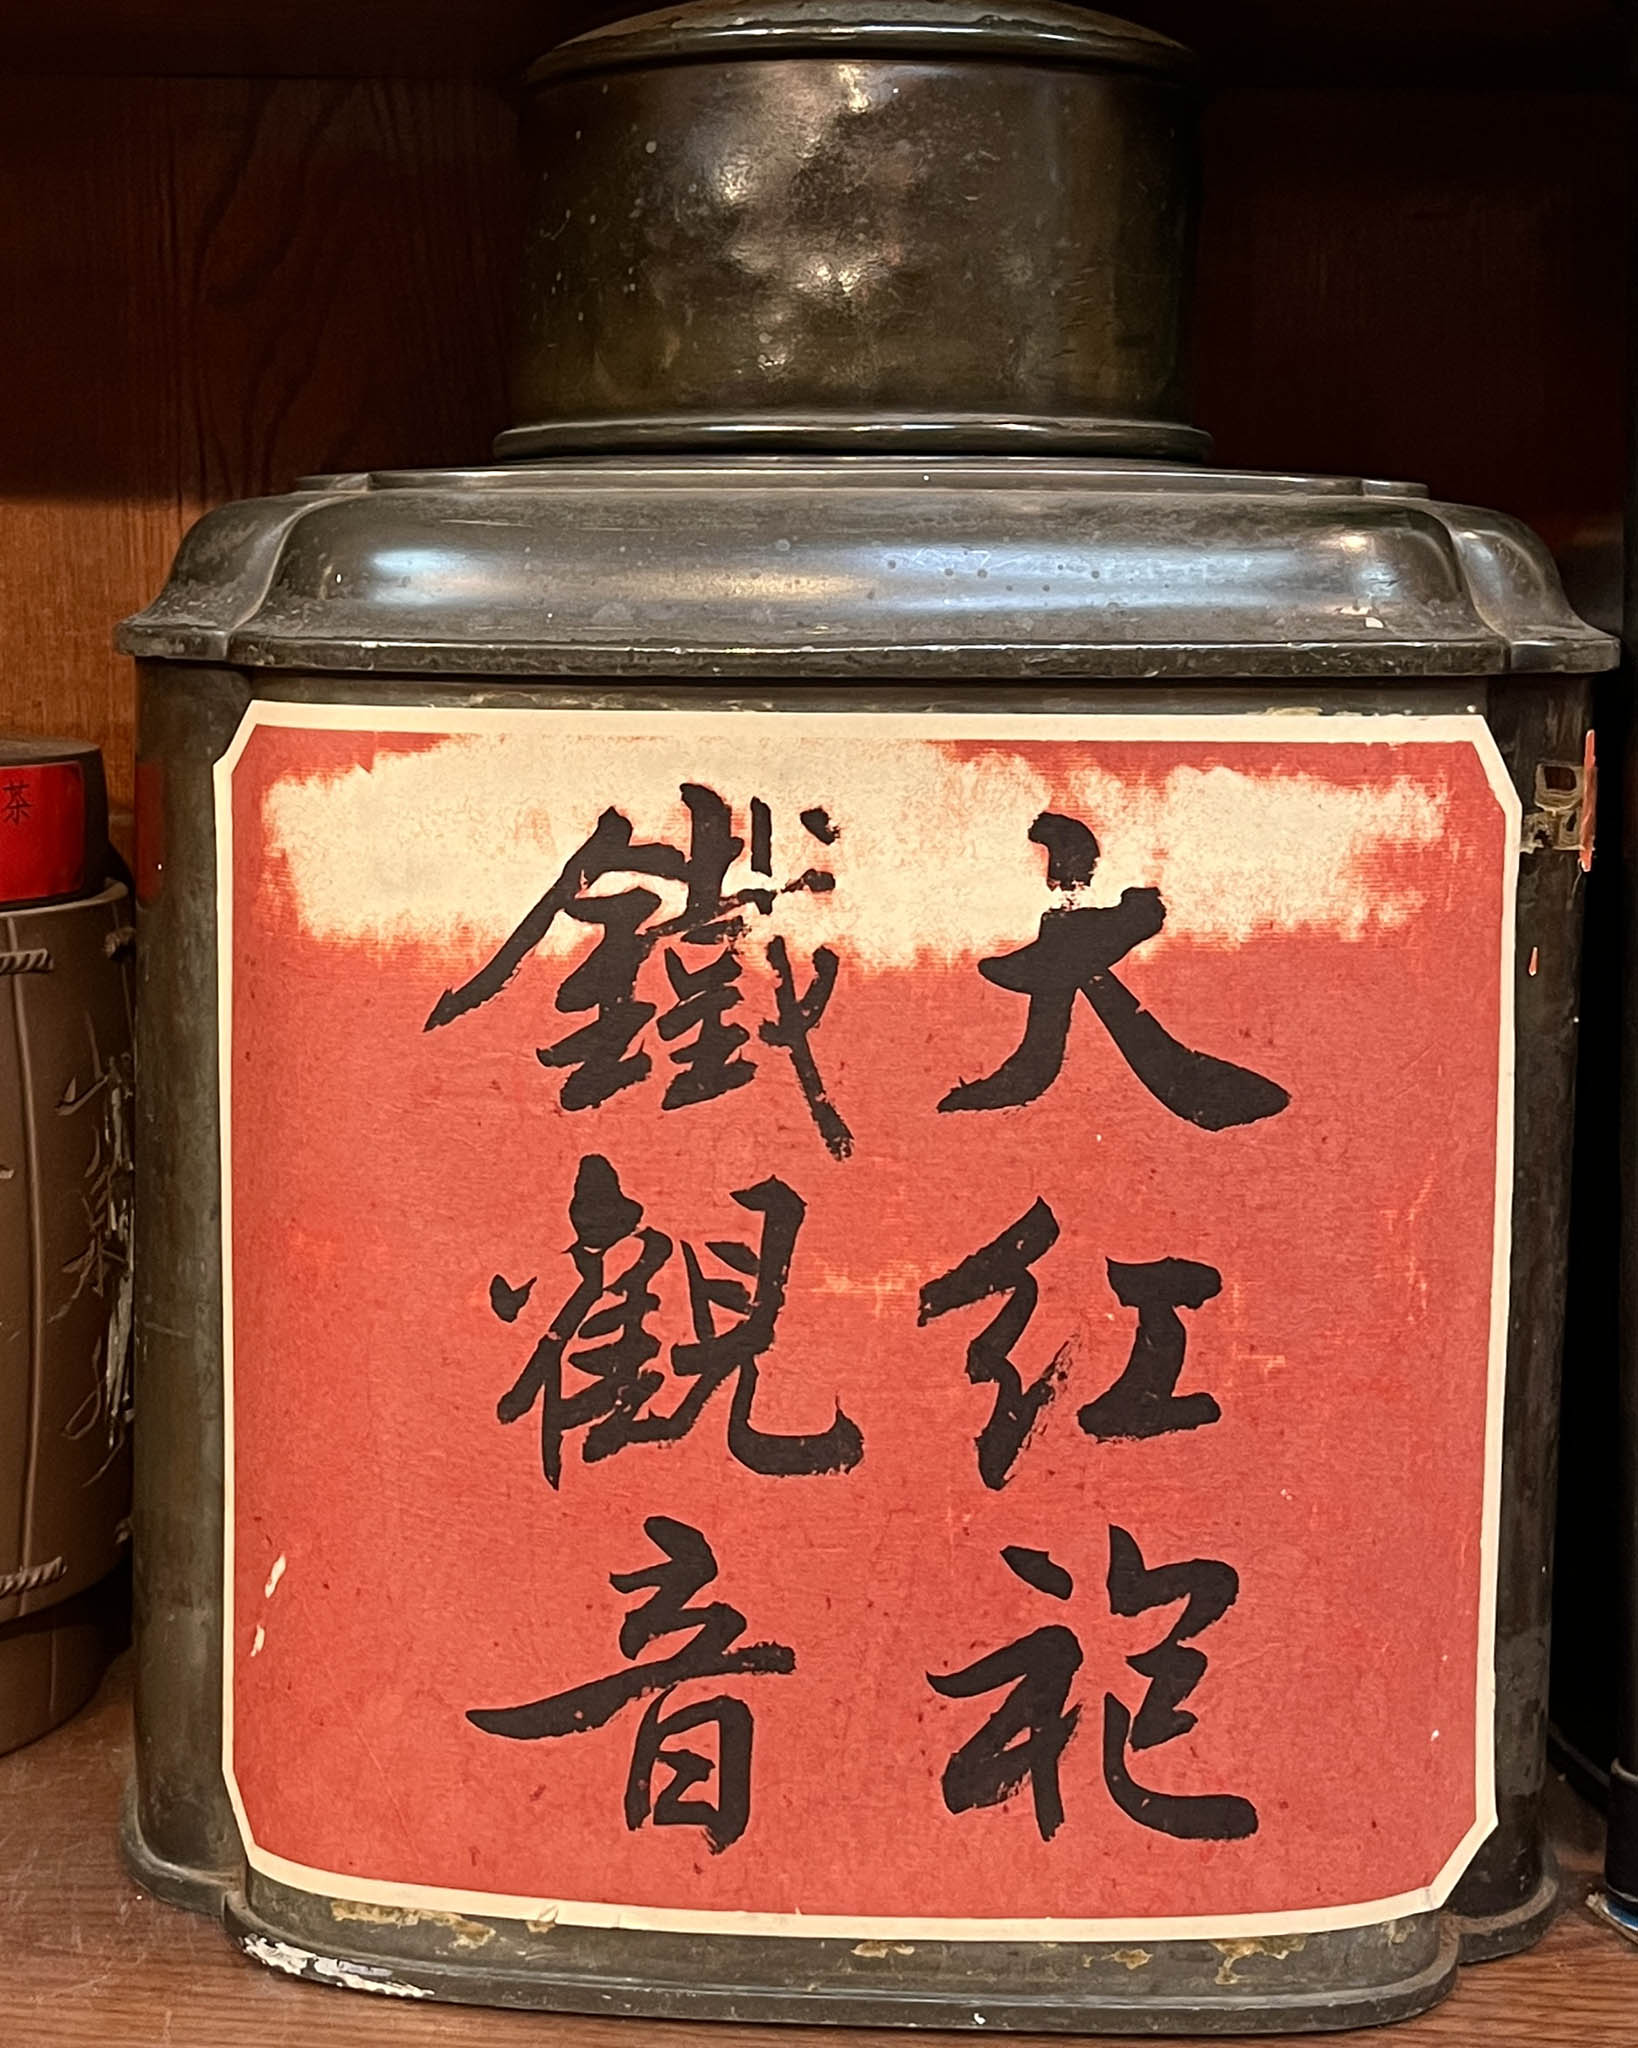 大红袍
鐵觀音
茶